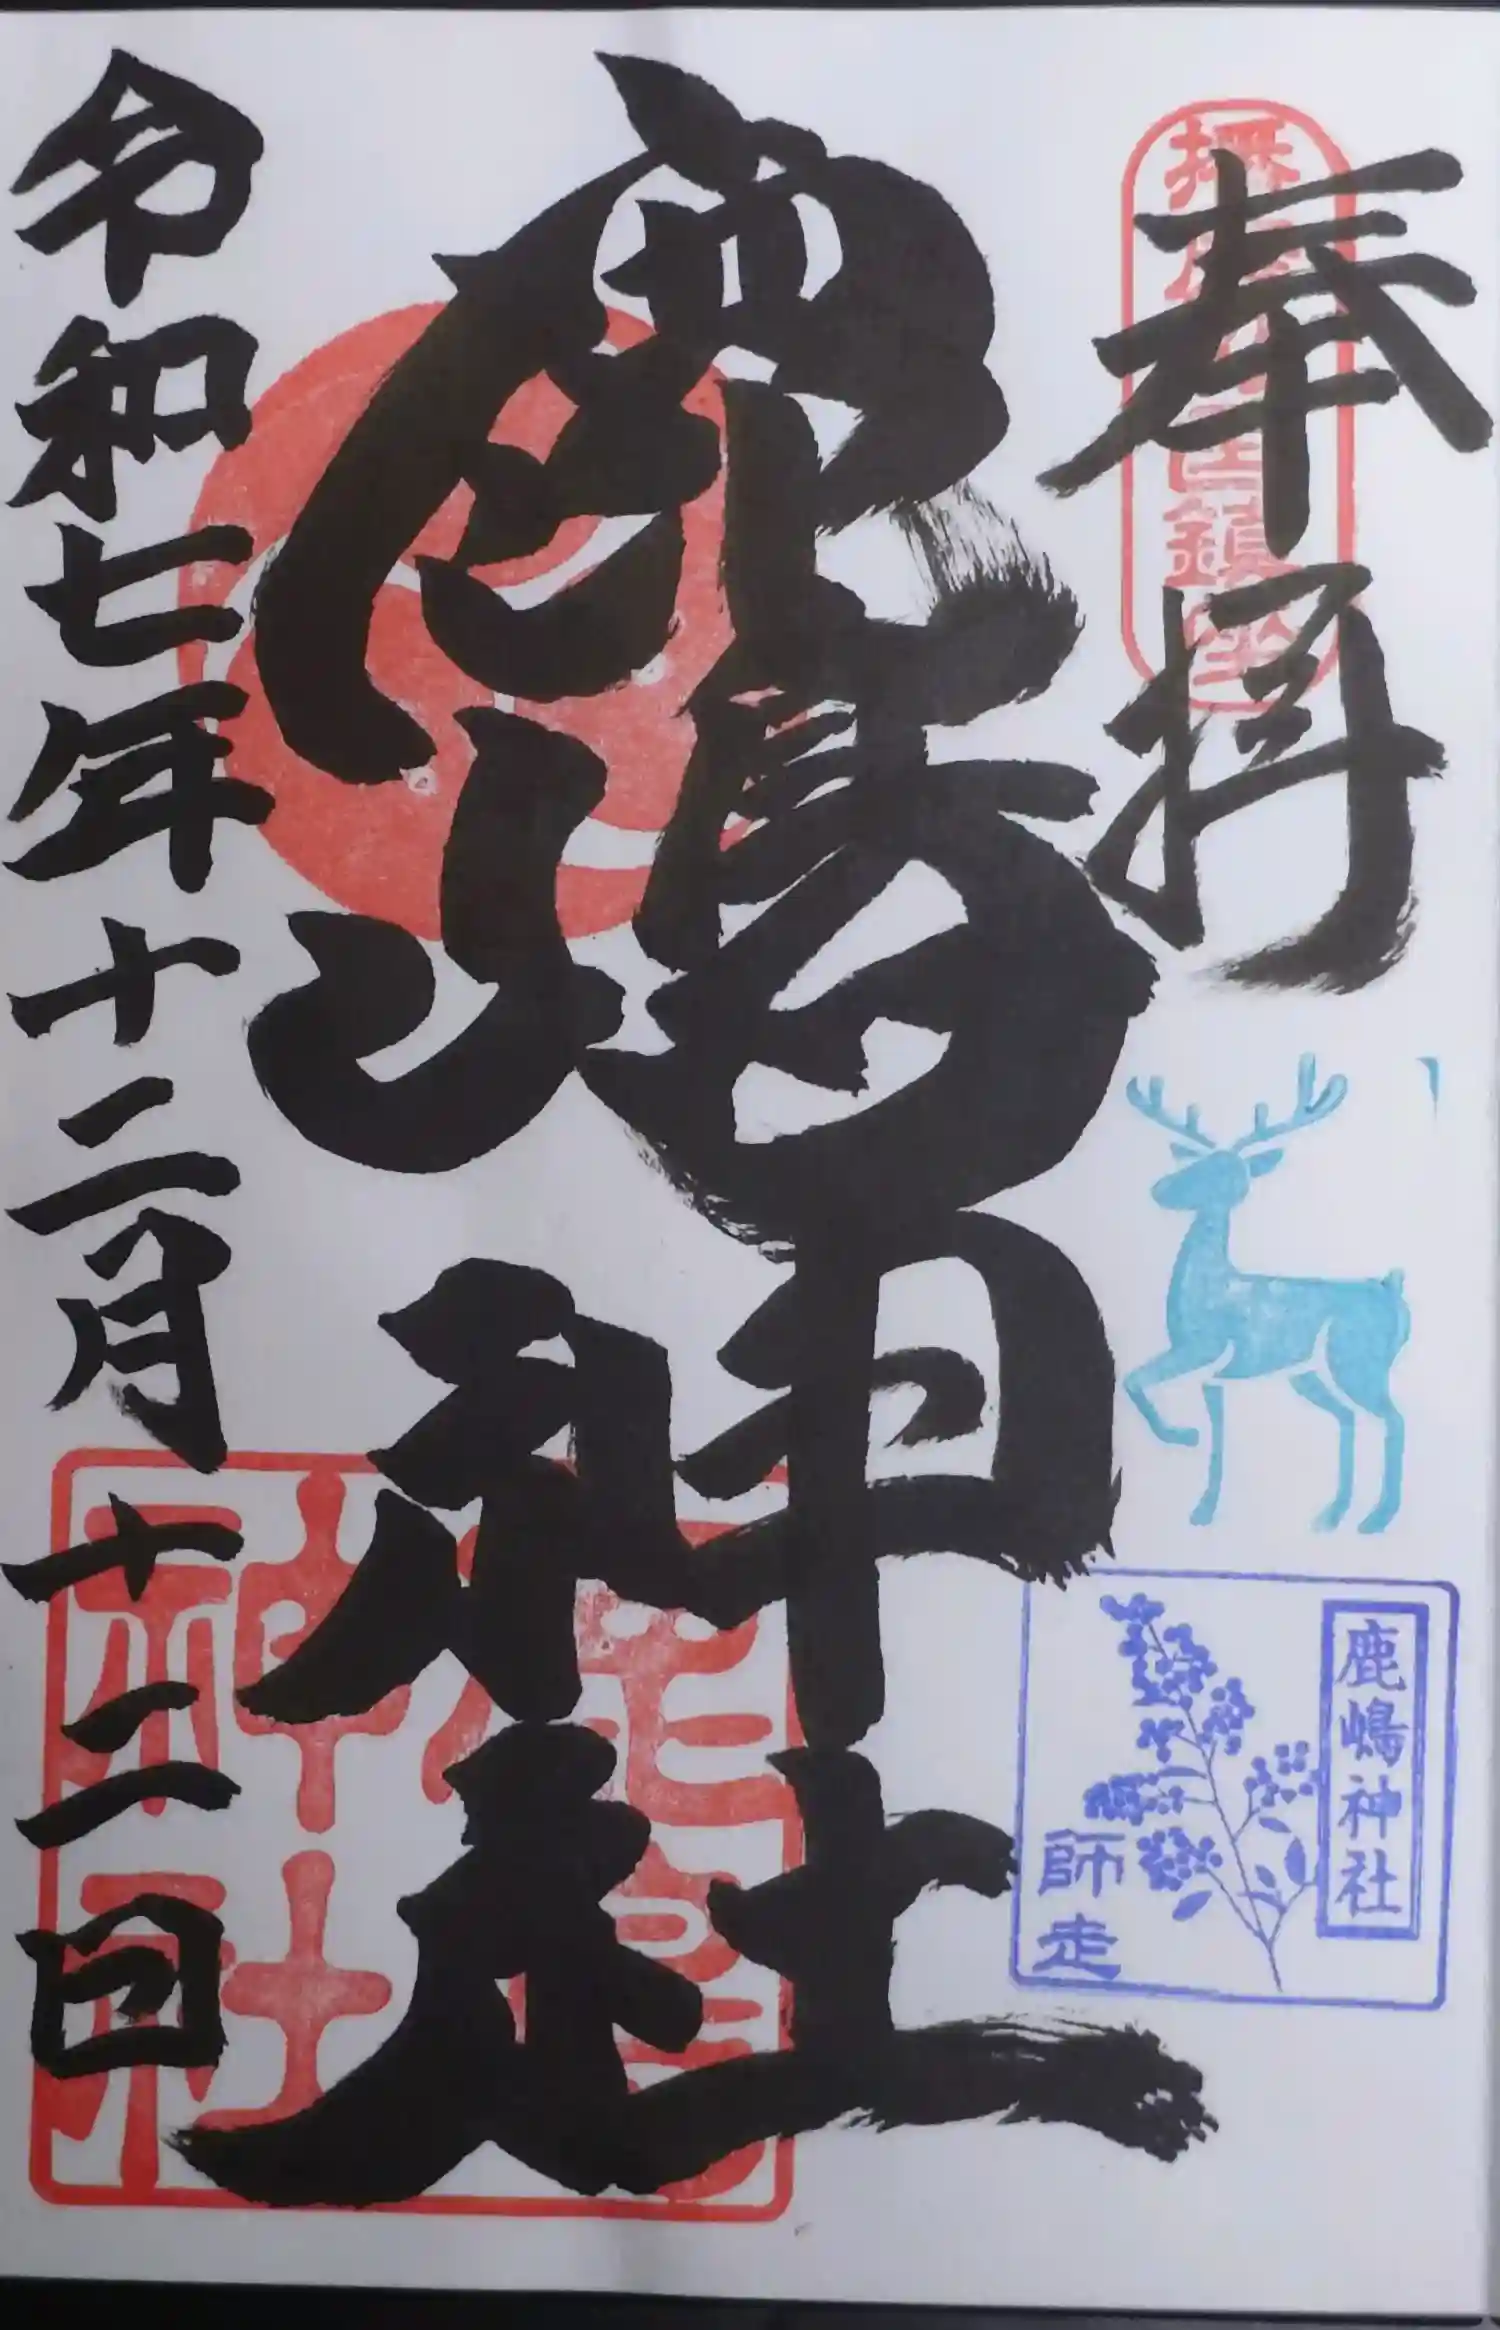 奉拝
国鎮座
鹿嶋神社
師走
鹿嶋神社
神社
令和七年十二月十二日